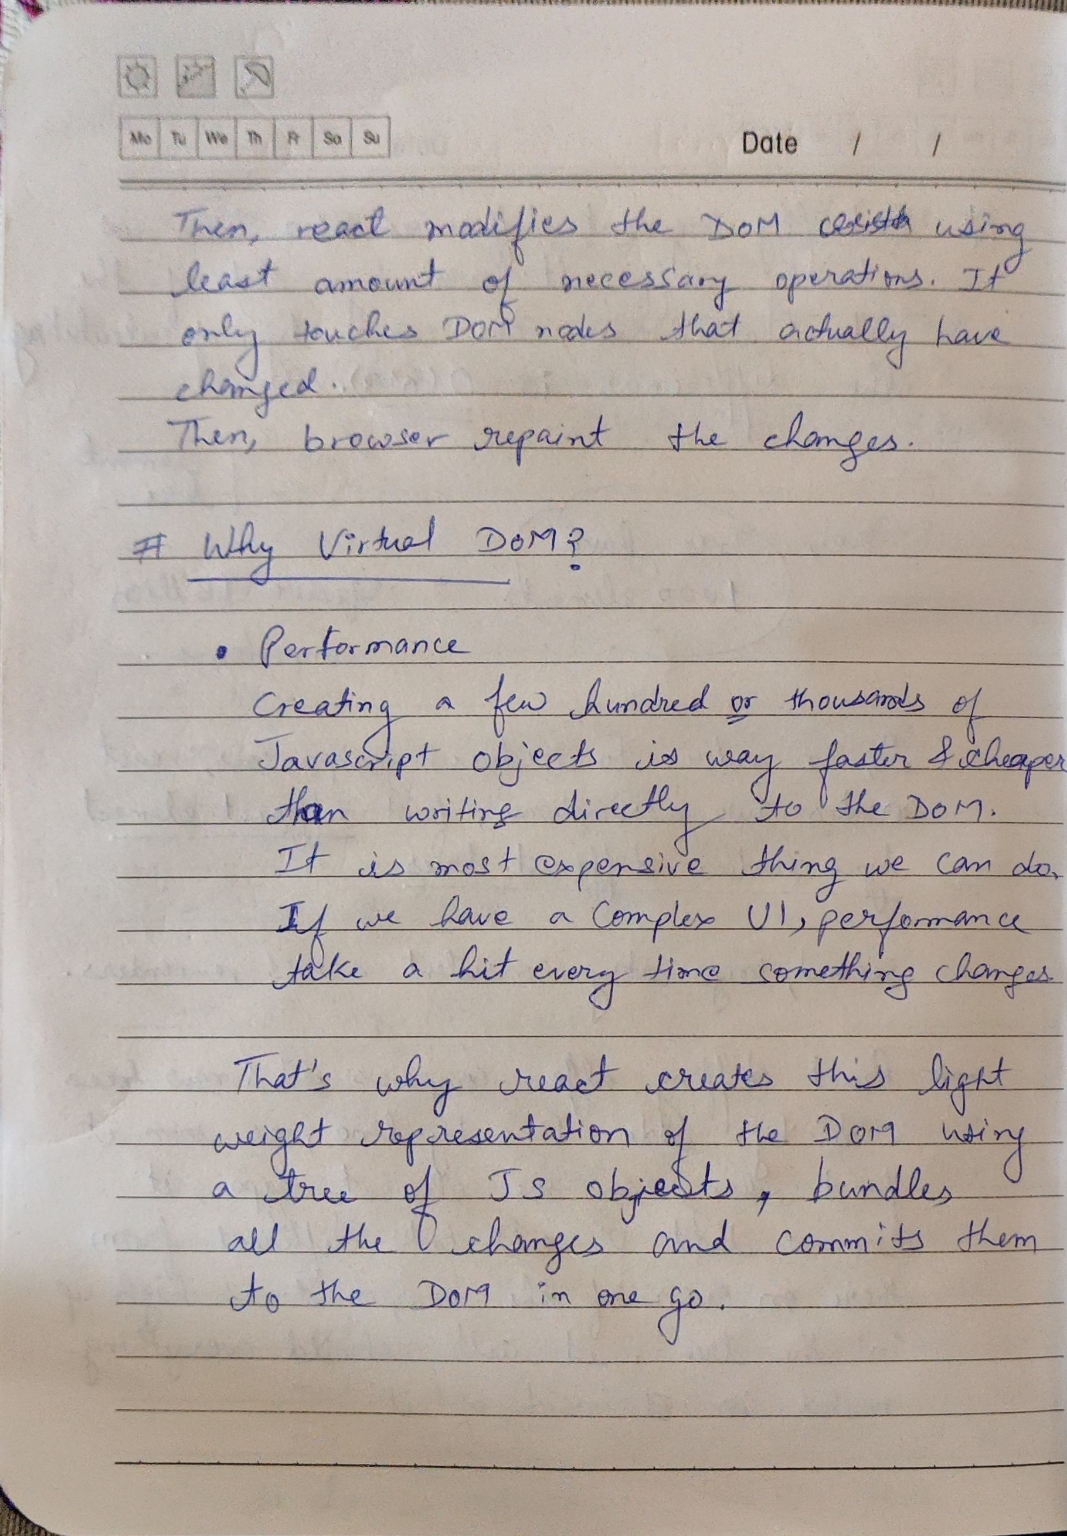 Mo Tu We Th Fr Sa Su
Date / /
Then, react modifies the DOM using
least amount of necessary operations. It
only touches DOM nodes that actually have
changed.
Then, browser repaint the changes.
# Why Virtual DOM?
• Performance
Creating a few hundred or thousands of
Javascript objects is way faster & cheaper
than writing directly to the DOM.
It is most expensive thing we can do.
If we have a Complex UI, performance
take a hit every time something changes
That's why react creates this light
weight representation of the DOM using
a tree of JS objects, bundles
all the changes and commits them
to the DOM in one go.